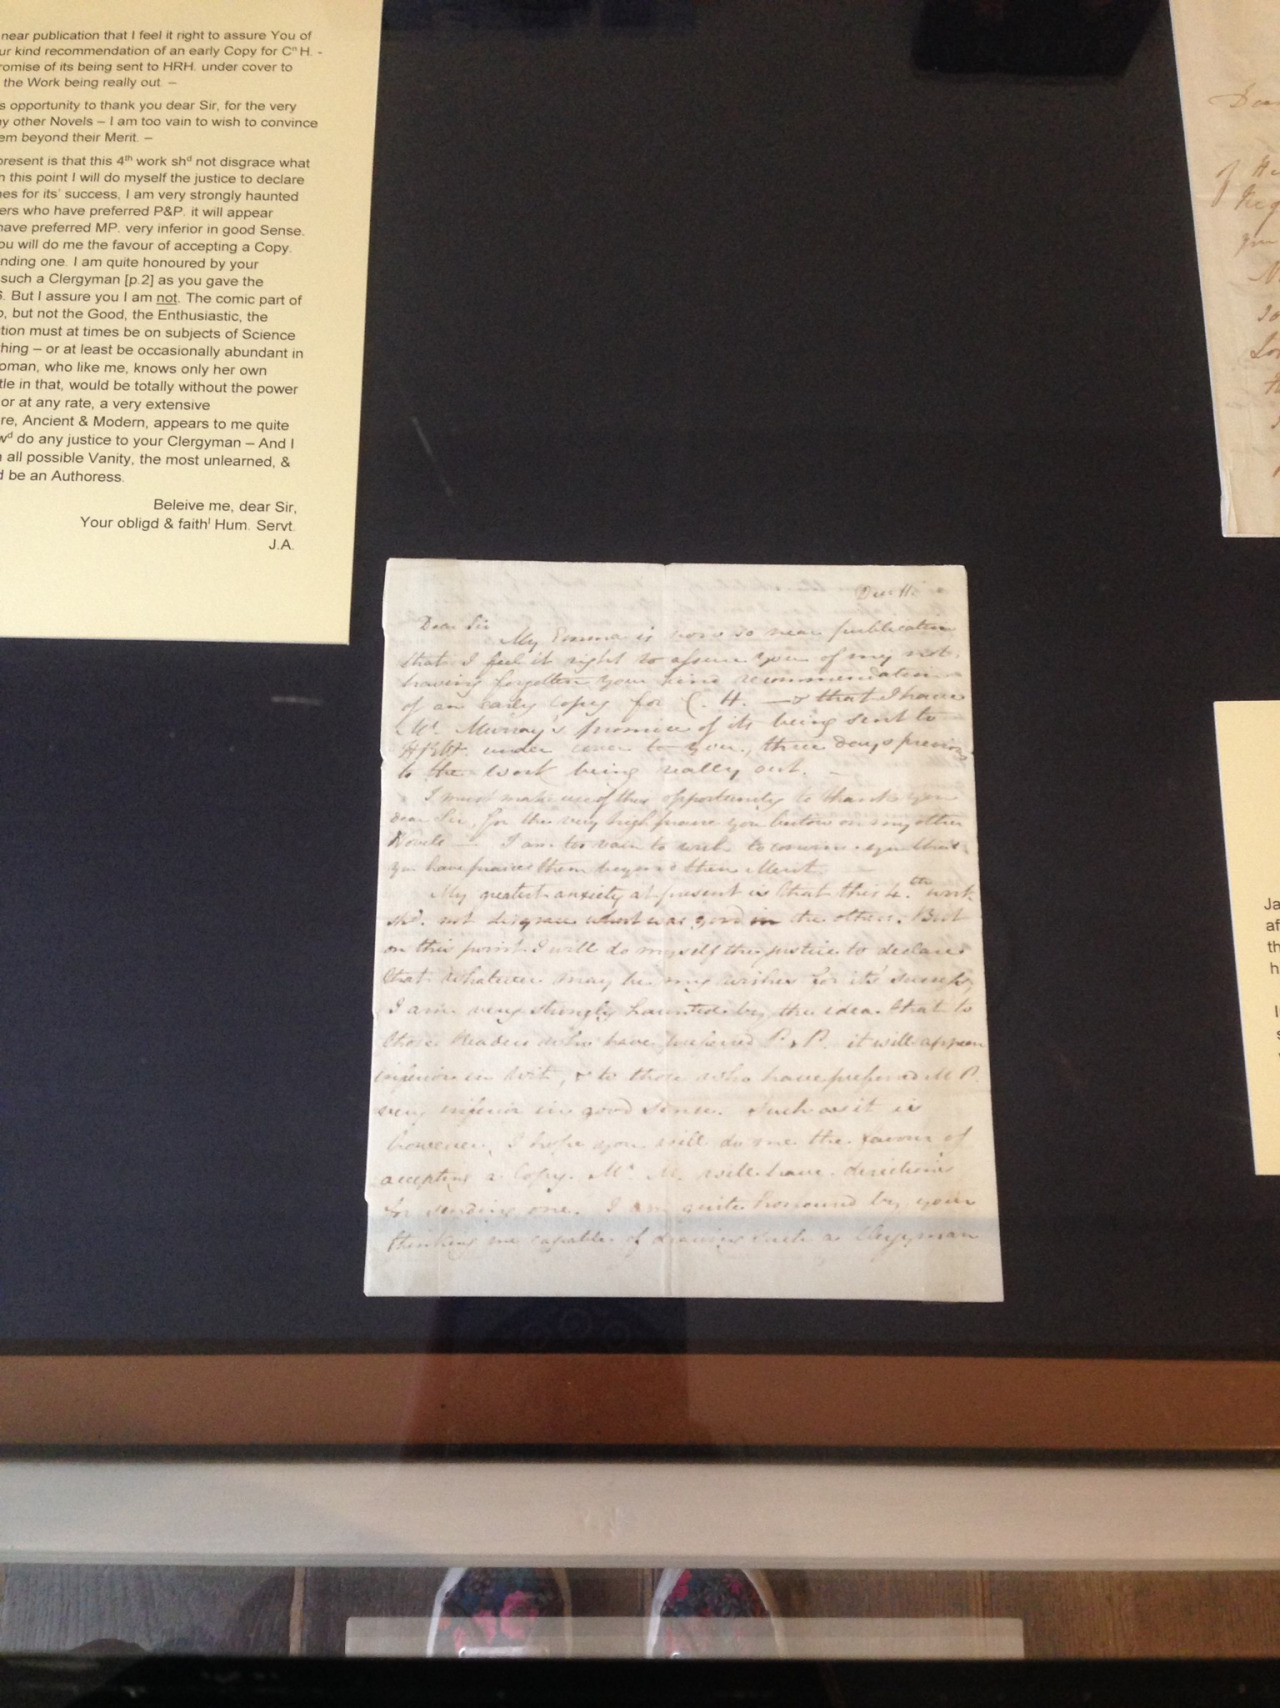 near publication that I feel it right to assure You of
ur kind recommendation of an early Copy for Cⁿ H. -
romise of its being sent to HRH. under cover to
the Work being really out. –
s opportunity to thank you dear Sir, for the very
y other Novels – I am too vain to wish to convince
em beyond their Merit. –
present is that this 4th work shd not disgrace what
n this point I will do myself the justice to declare
es for its' success, I am very strongly haunted
ers who have preferred P&P. it will appear
have preferred MP. very inferior in good Sense.
ou will do me the favour of accepting a Copy.
nding one. I am quite honoured by your
such a Clergyman [p.2] as you gave the
. But I assure you I am not. The comic part of
o, but not the Good, the Enthusiastic, the
tion must at times be on subjects of Science
hing – or at least be occasionally abundant in
oman, who like me, knows only her own
tle in that, would be totally without the power
or at any rate, a very extensive
re, Ancient & Modern, appears to me quite
wd do any justice to your Clergyman – And I
all possible Vanity, the most unlearned, &
d be an Authoress.
Beleive me, dear Sir,
Your obligd & faithl Hum. Servt.
J.A.
Dear Sir
My Emma is now so near publication
that I feel it right to assure you of my not
having forgotten your kind recommendation
of an early Copy for C. H. — & that I have
Mr. Murray's promise of its being sent to
HRH. under cover to you, three days previous
to the Work being really out. –
I must make use of this opportunity to thank you
dear Sir, for the very high praise you bestow on my other
Novels — I am too vain to wish to convince you that
you have praised them beyond their Merit. –
My greatest anxiety at present is that this 4th work
shd. not disgrace what was good in the others. But
on this point I will do myself the justice to declare
that whatever may be my wishes for its' success,
I am very strongly haunted by the idea that to
those Readers who have preferred P. & P. it will appear
inferior in Wit, & to those who have preferred M P
very inferior in good Sense. Such as it is
however, I hope you will do me the favour of
accepting a Copy. Mr. M. will have directions
for sending one. I am quite honoured by your
thinking me capable of drawing such a Clergyman
Dear
Ja
af
th
h